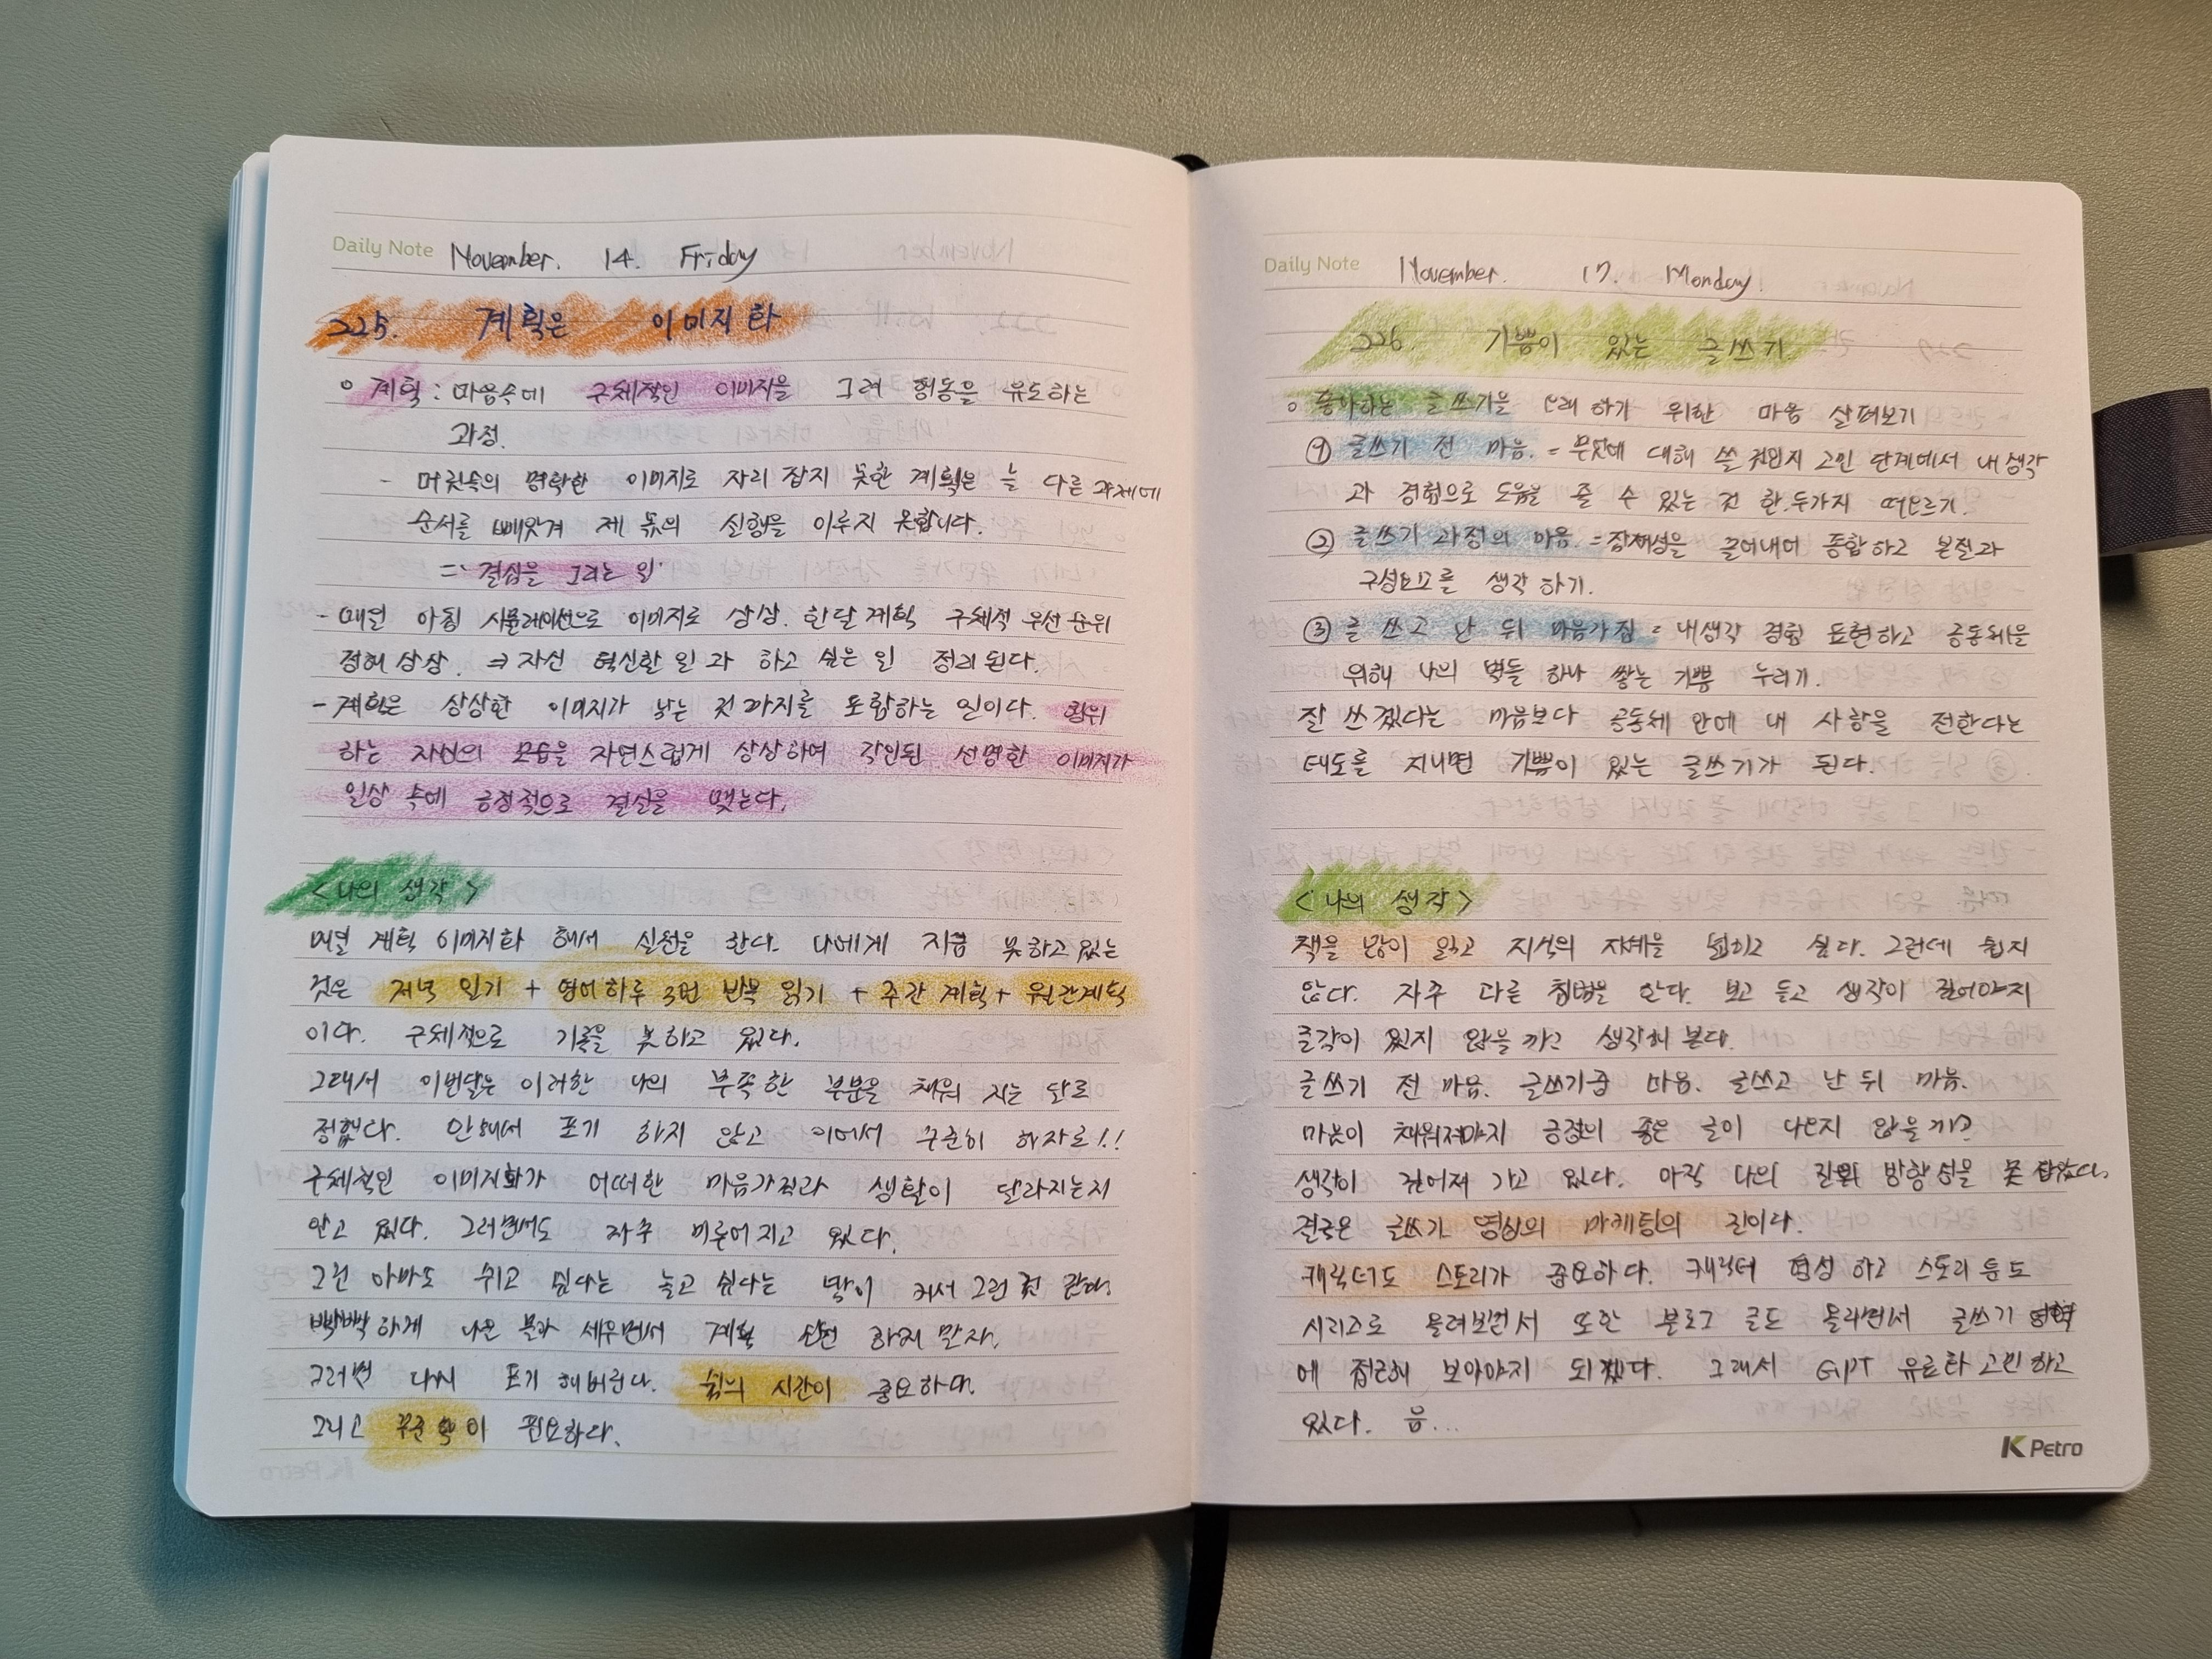 Daily Note November. 14. Friday
225. 계획은 이미지화
○ 계획 : 마음속에 구체적인 이미지을 그려 행동을 유도하는
과정.
- 머릿속의 명확한 이미지로 자리 잡지 못한 계획은 늘 다른 과제에
순서를 빼앗겨 제 몫의 실행을 이루지 못합니다.
=> 결심을 그리는 일.
- 매일 아침 시뮬레이션으로 이미지로 상상. 한달 계획 구체적 우선순위
정해 상상. => 자신 혁신할 일과 하고 싶은 일 정리 된다.
- 계획은 상상한 이미지가 낳는 것 까지를 포함하는 일이다. 행위
하는 자신의 모습을 자연스럽게 상상하여 각인된 선명한 이미지가
일상 속에 긍정적으로 결실을 맺는다.
<나의 생각>
매일 계획 이미지화 해서 실천을 한다. 나에게 지금 못하고 있는
것은 저녁 일기 + 영어하루 3번 반복 읽기 + 주간 계획 + 월간계획
이다. 구체적으로 기록을 못하고 있다.
그래서 이번달은 이러한 나의 부족한 부분을 채워 지는 달로
정했다. 안해서 포기 하지 않고 이어서 꾸준히 하자로!!
구체적인 이미지화가 어떠한 마음가짐과 생활이 달라지는지
알고 있다. 그러면서도 자주 미루어 지고 있다.
그건 아마도 쉬고 싶다는 놀고 싶다는 맘이 커서 그런 것 같다.
빡빡하게 나온 분과 세우면서 계획 실천 하지 말자.
그러면 다시 포기 해버린다. 쉼의 시간이 중요하다.
그리고 꾸준 이 필요하다.
Daily Note November. 17. Monday.
226. 기쁨이 있는 글쓰기
○ 좋아하는 글쓰기을 오래 하기 위한 마음 살펴보기
① 글쓰기 전 마음. = 무엇에 대해 쓸 것인지 고민 단계에서 내 생각
과 경험으로 도움을 줄 수 있는 것 한.두가지 떠오르기.
② 글쓰기 과정의 마음. = 잠재성을 끌어내어 종합하고 본질과
구성요소를 생각 하기.
③ 글 쓰고 난 뒤 마음가짐 = 내생각 경험 표현하고 공동체을
위해 나의 벽돌 하나 쌓는 기쁨 누리기.
잘 쓰겠다는 마음보다 공동체 안에 내 사항을 전한다는
태도를 지니면 기쁨이 있는 글쓰기가 된다.
<나의 생각>
책을 많이 읽고 지식의 지혜을 넓히고 싶다. 그런데 쉽지
않다. 자주 다른 책을 안다. 보고 듣고 생각이 깊어야지
글감이 있지 않을까고 생각해 본다.
글쓰기 전 마음. 글쓰기중 마음. 글쓰고 난 뒤 마음.
마음이 채워져야지 긍정의 좋은 글이 나온지 않을까?
생각이 깊어져 가고 있다. 아직 나의 진짜 방향성을 못 잡았다.
결국은 글쓰기 영심의 마케팅의 길이다.
캐릭터도 스토리가 중요하다. 캐릭터 형성 하고 스토리 든도
시리즈로 올려보면서 또한 블로그 글도 올리면서 글쓰기
에 접근해 보아야지 되겠다. 그래서 GPT 유료화 고민 하고
있다. 음...
K Petro